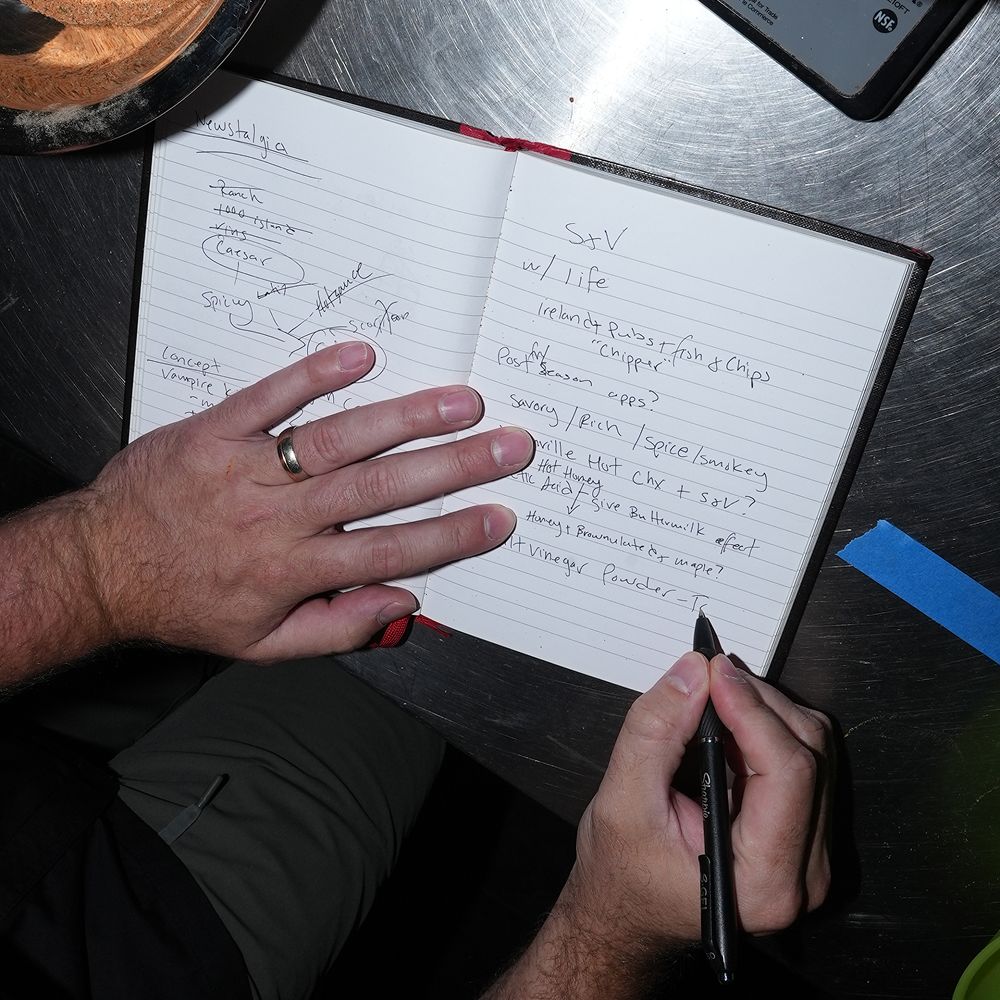 Newstalgia
Ranch
1000 island
ving
Caesar
Spicy
Hot sauce
Concept
Vampire
S+V
w/ Life
Ireland + Pubs + fish & Chips
"Chipper"
Post fry
season apps?
Savory / Rich / Spice / smokey
ville Hot Chx + S+V?
Hot Honey
tic Acid + give Buttermilk effect
Honey + Brownulated or maple?
lt vinegar Powder - To
for Trade
Comments
NSF
Sharpie
S.GEL